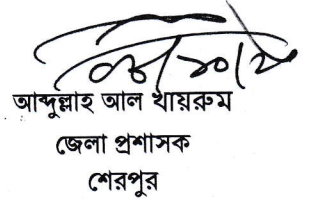 আব্দুল্লাহ আল খায়রুম
জেলা প্রশাসক
শেরপুর